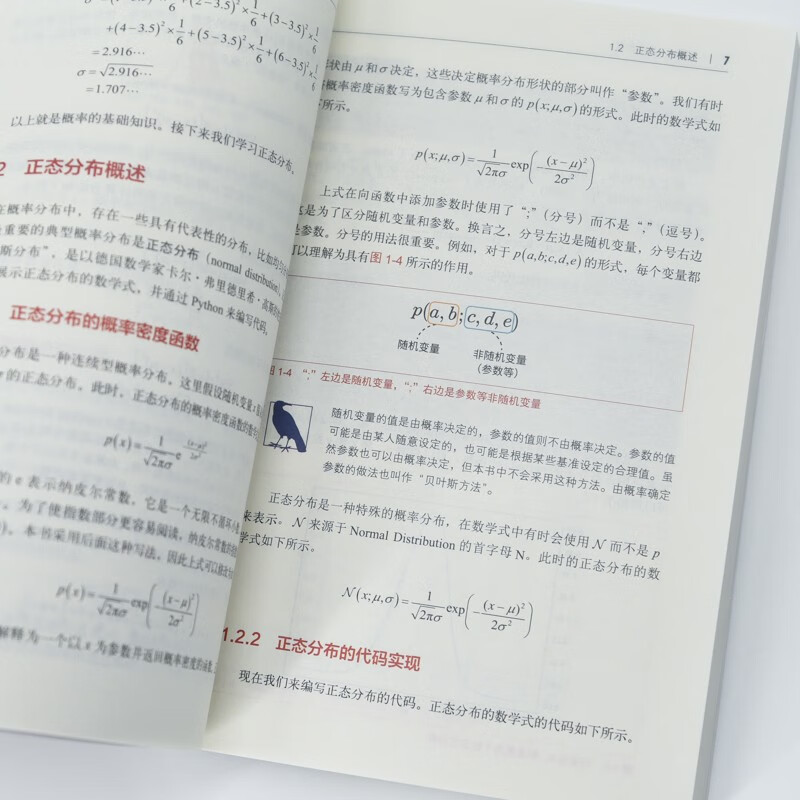 +(4−3.5)²×1/6+(5−3.5)²×1/6+(6−3.5)²×1/6
=2.916⋯
σ=√2.916⋯
=1.707⋯
以上就是概率的基础知识。接下来我们学习正态分布。
2 正态分布概述
在概率分布中，存在一些具有代表性的分布，比如
重要的典型概率分布是正态分布（normal distribution）
斯分布”，是以德国数学家卡尔·弗里德里希·高斯
展示正态分布的数学式，并通过 Python 来编写代码。
正态分布的概率密度函数
分布是一种连续型概率分布。这里假设随机变量
的正态分布。此时，正态分布的概率密度函数的
p(x)=1/√2πσ e^−(x−μ)²/2σ²
的 e 表示纳皮尔常数，它是一个无限不循环小
。为了使指数部分更容易阅读，纳皮尔常数的
)。本书采用后面这种写法，因此上式可以
p(x)=1/√2πσ exp(−(x−μ)²/2σ²)
解释为一个以 x 为参数并返回概率密度的函数
1.2 正态分布概述 | 7
形状由 μ 和 σ 决定，这些决定概率分布形状的部分叫作“参数”。我们有时
概率密度函数写为包含参数 μ 和 σ 的 p(x;μ,σ) 的形式。此时的数学式如
下所示。
p(x;μ,σ)=1/√2πσ exp(−(x−μ)²/2σ²)
上式在向函数中添加参数时使用了“;”（分号）而不是“,”（逗号）。
这是为了区分随机变量和参数。换言之，分号左边是随机变量，分号右边
是参数。分号的用法很重要。例如，对于 p(a,b;c,d,e) 的形式，每个变量都
可以理解为具有图 1-4 所示的作用。
p(a,b;c,d,e)
随机变量
非随机变量
（参数等）
图 1-4 “;”左边是随机变量，“;”右边是参数等非随机变量
随机变量的值是由概率决定的，参数的值则不由概率决定。参数的值
可能是由某人随意设定的，也可能是根据某些基准设定的合理值。虽
然参数也可以由概率决定，但本书中不会采用这种方法。由概率确定
参数的做法也叫作“贝叶斯方法”。
正态分布是一种特殊的概率分布，在数学式中有时会使用 𝒩 而不是 p
来表示。𝒩 来源于 Normal Distribution 的首字母 N。此时的正态分布的数
学式如下所示。
𝒩(x;μ,σ)=1/√2πσ exp(−(x−μ)²/2σ²)
1.2.2 正态分布的代码实现
现在我们来编写正态分布的代码。正态分布的数学式的代码如下所示。